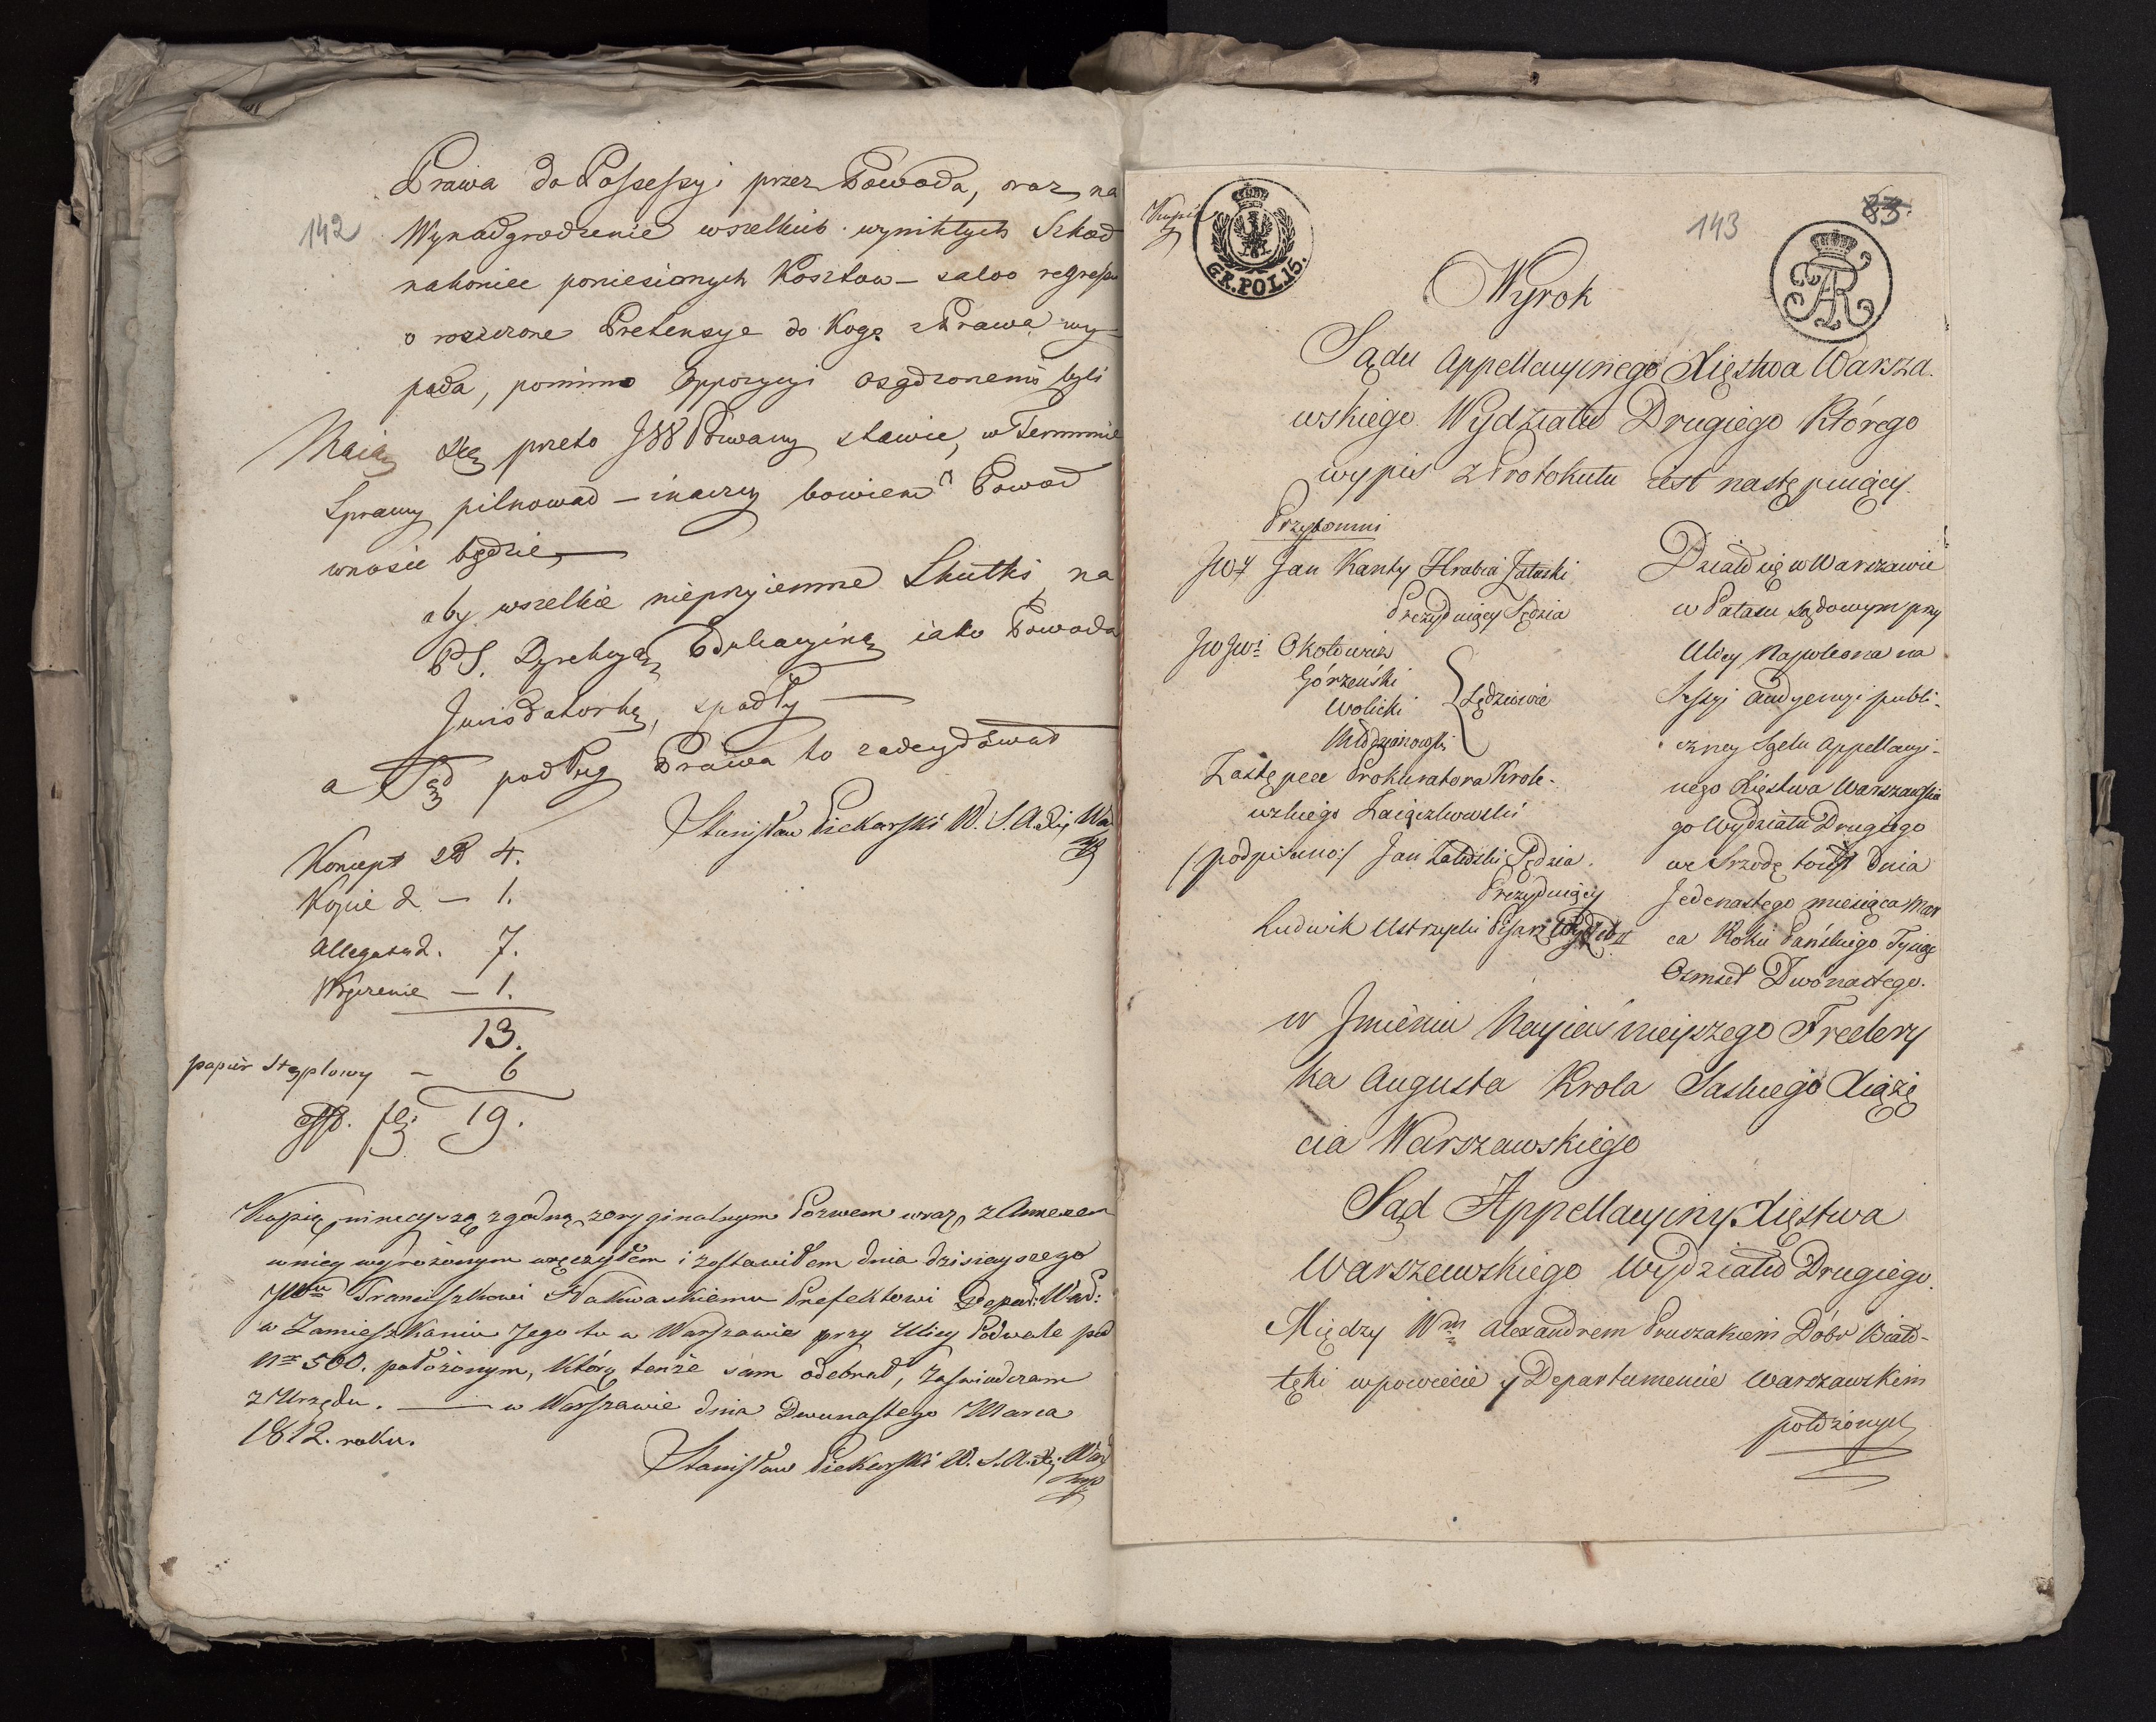 142
Prawa do Possessyi przez Powoda, oraz na
Wynadgrodzenie wszelkich wynikłych Szkod
nakoniec poniesionych Kosztow – salvo regressu
o roszczone Pretensye do Kogo z Prawa wy-
pada, pomimo Oppozycyi osądzonemi byli
Maią się przeto JWW Pozwany stawić, w Terminie
Sprawy pilnować – inaczey bowiem Powod
wnosić będzie,
aby wszelkie nieprzyiemne Skutki na
PS. Dyrekcyą Edukacyiną iako Powoda
spadły
a Sąd podług Prawa to zadecydował
Stanisław Piekarski W. S. A. Xię War
Koncept 4.
Kopie 2 – 1.
Allegata 2. 7.
Wręczenie – 1.
13.
papier stęplowy – 6
19.
Kopią ninieyszą zgodną z oryginalnym Pozwem wraz z Annexem
w niey wyrażonym wręczyłem i zostawiłem dnia dzisieyszego
JWmu Franciszkowi Nakwaskiemu Prefektowi Depar: War:
w Zamieszkaniu Jego tu w Warszawie przy Ulicy Podwale pod
Nrem 500. położonym, którą tenże sam odebrał, zaświadczam
z Urzędu. — w Warszawie dnia Dwunastego Marca
1812. roku.
Stanisław Piekarski W. S. A. Xię War
Kopia
GR. POL. 15.
143
83.
Wyrok
Sądu Appellacyinego Xięstwa Warsza-
wskiego Wydziału Drugiego Którego
wypis z Protokułu iest następuiący
Przytomni
JW Jan Kanty Hrabia Załuski
Prezyduiący Sędzia
JWJWi Okołowicz
Górzeński
Wolicki
Młodzianowski
Sędziowie
Zastępca Prokuratora Krole-
wskiego Zaiączkowski
/podpisano:/ Jan Załuski Sędzia
Prezyduiący
Ludwik Ustrzycki Pisarz Wydz. II
Działo się w Warszawie
w Pałacu Sądowym przy
Ulicy Napoleona na
Sessyi Audyencyi publi-
czney Sądu Appellacyi-
nego Xięstwa Warszawskie
go Wydziału Drugiego
we Srzodę to iest dnia
Jedenastego miesiąca Mar
ca Roku Pańskiego Tysiąc
Osmset Dwonastego.
w Imieniu Nayiaśnieyszego Fredery
ka Augusta Krola Saskiego Xiążę
cia Warszawskiego
Sąd Appellacyiny Xięstwa
Warszawskiego Wydziału Drugiego.
Między Wm Alexandrem Pruszakiem Dóbr Biało-
łęki w powiecie y Departamencie Warszawskim
położonych